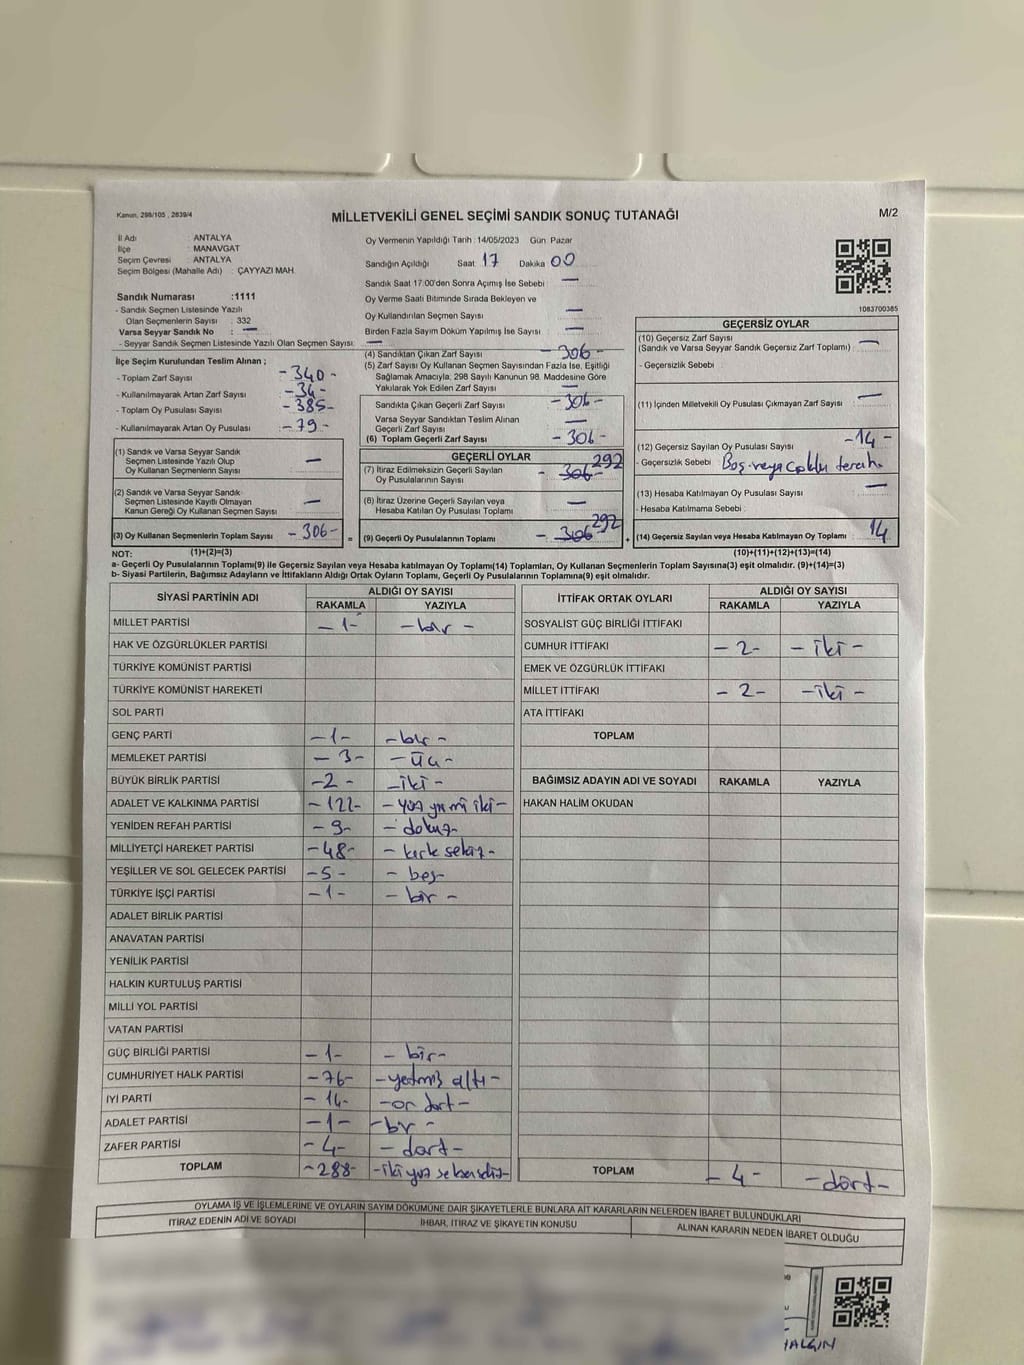 Kanun, 298/105 , 2839/4
MİLLETVEKİLİ GENEL SEÇİMİ SANDIK SONUÇ TUTANAĞI
M/2
İl Adı : ANTALYA
İlçe : MANAVGAT
Seçim Çevresi : ANTALYA
Seçim Bölgesi (Mahalle Adı) : ÇAYYAZI MAH.
Sandık Numarası :1111
- Sandık Seçmen Listesinde Yazılı
Olan Seçmenlerin Sayısı : 332
Varsa Seyyar Sandık No : —
- Seyyar Sandık Seçmen Listesinde Yazılı Olan Seçmen Sayısı: —
İlçe Seçim Kurulundan Teslim Alınan ;
- Toplam Zarf Sayısı : -340-
- Kullanılmayarak Artan Zarf Sayısı : -34-
- Toplam Oy Pusulası Sayısı : -385-
- Kullanılmayarak Artan Oy Pusulası : -79-
(1) Sandık ve Varsa Seyyar Sandık
Seçmen Listesinde Yazılı Olup
Oy Kullanan Seçmenlerin Sayısı —
(2) Sandık ve Varsa Seyyar Sandık
Seçmen Listesinde Kayıtlı Olmayan
Kanun Gereği Oy Kullanan Seçmen Sayısı —
(3) Oy Kullanan Seçmenlerin Toplam Sayısı -306-
Oy Vermenin Yapıldığı Tarih : 14/05/2023 Gün: Pazar
Sandığın Açıldığı Saat: 17 Dakika 00
Sandık Saat 17:00'den Sonra Açımış İse Sebebi : —
Oy Verme Saati Bitiminde Sırada Bekleyen ve
Oy Kullandırılan Seçmen Sayısı : —
Birden Fazla Sayım Döküm Yapılmış İse Sayısı : —
(4) Sandıktan Çıkan Zarf Sayısı -306-
(5) Zarf Sayısı Oy Kullanan Seçmen Sayısından Fazla İse, Eşitliği
Sağlamak Amacıyla, 298 Sayılı Kanunun 98. Maddesine Göre
Yakılarak Yok Edilen Zarf Sayısı —
Sandıkta Çıkan Geçerli Zarf Sayısı -306-
Varsa Seyyar Sandıktan Teslim Alınan
Geçerli Zarf Sayısı —
(6) Toplam Geçerli Zarf Sayısı -306-
GEÇERLİ OYLAR
(7) İtiraz Edilmeksizin Geçerli Sayılan
Oy Pusulalarının Sayısı - 306- 292
(8) İtiraz Üzerine Geçerli Sayılan veya
Hesaba Katılan Oy Pusulası Toplamı —
= (9) Geçerli Oy Pusulalarının Toplamı - 306- 292
1083700385
GEÇERSİZ OYLAR
(10) Geçersiz Zarf Sayısı
(Sandık ve Varsa Seyyar Sandık Geçersiz Zarf Toplamı) —
- Geçersizlik Sebebi :
(11) İçinden Milletvekili Oy Pusulası Çıkmayan Zarf Sayısı —
(12) Geçersiz Sayılan Oy Pusulası Sayısı -14-
- Geçersizlik Sebebi : Boş veya çoklu tercih.
(13) Hesaba Katılmayan Oy Pusulası Sayısı —
- Hesaba Katılmama Sebebi :
+ (14) Geçersiz Sayılan veya Hesaba Katılmayan Oy Toplamı 14
NOT: (1)+(2)=(3) (10)+(11)+(12)+(13)=(14)
a- Geçerli Oy Pusulasının Toplamı(9) ile Geçersiz Sayılan veya Hesaba katılmayan Oy Toplamı(14) Toplamları, Oy Kullanan Seçmenlerin Toplam Sayısına(3) eşit olmalıdır. (9)+(14)=(3)
b- Siyasi Partilerin, Bağımsız Adayların ve İttifakların Aldığı Ortak Oyların Toplamı, Geçerli Oy Pusulalarının Toplamına(9) eşit olmalıdır.
SİYASİ PARTİNİN ADI ALDIĞI OY SAYISI
RAKAMLA YAZIYLA
MİLLET PARTİSİ -1- -bir-
HAK VE ÖZGÜRLÜKLER PARTİSİ
TÜRKİYE KOMÜNİST PARTİSİ
TÜRKİYE KOMÜNİST HAREKETİ
SOL PARTİ
GENÇ PARTİ -1- -bir-
MEMLEKET PARTİSİ -3- -üç-
BÜYÜK BİRLİK PARTİSİ -2- -iki-
ADALET VE KALKINMA PARTİSİ -122- -yüz yirmi iki-
YENİDEN REFAH PARTİSİ -9- -dokuz-
MİLLİYETÇİ HAREKET PARTİSİ -48- -kırk sekiz-
YEŞİLLER VE SOL GELECEK PARTİSİ -5- -beş-
TÜRKİYE İŞÇİ PARTİSİ -1- -bir-
ADALET BİRLİK PARTİSİ
ANAVATAN PARTİSİ
YENİLİK PARTİSİ
HALKIN KURTULUŞ PARTİSİ
MİLLİ YOL PARTİSİ
VATAN PARTİSİ
GÜÇ BİRLİĞİ PARTİSİ -1- -bir-
CUMHURİYET HALK PARTİSİ -76- -yetmiş altı-
İYİ PARTİ -14- -on dört-
ADALET PARTİSİ -1- -bir-
ZAFER PARTİSİ -4- -dört-
TOPLAM -288- -iki yüz seksensekiz-
İTTİFAK ORTAK OYLARI ALDIĞI OY SAYISI
RAKAMLA YAZIYLA
SOSYALİST GÜÇ BİRLİĞİ İTTİFAKI
CUMHUR İTTİFAKI -2- -iki-
EMEK VE ÖZGÜRLÜK İTTİFAKI
MİLLET İTTİFAKI -2- -iki-
ATA İTTİFAKI
TOPLAM
BAĞIMSIZ ADAYIN ADI VE SOYADI RAKAMLA YAZIYLA
HAKAN HALİM OKUDAN
TOPLAM -4- -dört-
OYLAMA İŞ VE İŞLEMLERİNE VE OYLARIN SAYIM DÖKÜMÜNE DAİR ŞİKAYETLERLE BUNLARA AİT KARARLARIN NELERDEN İBARET BULUNDUKLARI
İTİRAZ EDENİN ADI VE SOYADI İHBAR, İTİRAZ VE ŞİKAYETİN KONUSU ALINAN KARARIN NEDEN İBARET OLDUĞU